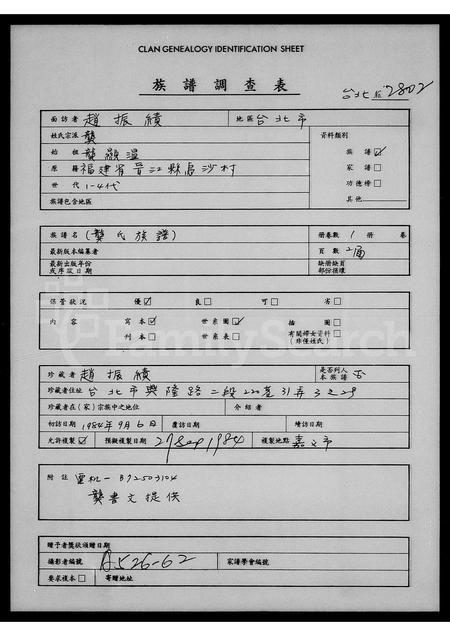 CLAN GENEALOGY IDENTIFICATION SHEET
族譜調查表
台北 2802
面訪者 趙振績 地區 台北市
姓氏宗派 龔 資料類別
始祖 龔顯溫 族譜☑
原籍 福建省晉江縣 沙村 家譜□
世代 1-4代 功德榜□
族譜包含地區 其他
族譜名 (龔氏族譜) 冊卷數 1 冊 卷
最新版本編纂者 頁數
最新出版年份或序跋日期 缺冊缺頁部份損壞
保管狀況 優☑ 良□ 可□ 劣□
內容 寫本☑ 世系圖☑ 插圖□
刊本□ 世系表□ 有關婦女資料□ (非僅姓氏)
珍藏者 趙振績 是否列入本族譜 否
珍藏者住址 台北市興隆路二段220巷31弄3之2號
珍藏者在(家)宗族中之地位 介紹者
初訪日期 1984年9月6日 覆訪日期 續訪日期
允許複製☑ 預擬複製日期 27 Sep 1984 複製地點 嘉義市
附註 電机一 B72503104
龔書文提供
贈予者獎狀頒贈日期
攝影者編號 A526-62 家譜學會編號
要求複本□ 寄贈地址
FamilySearch